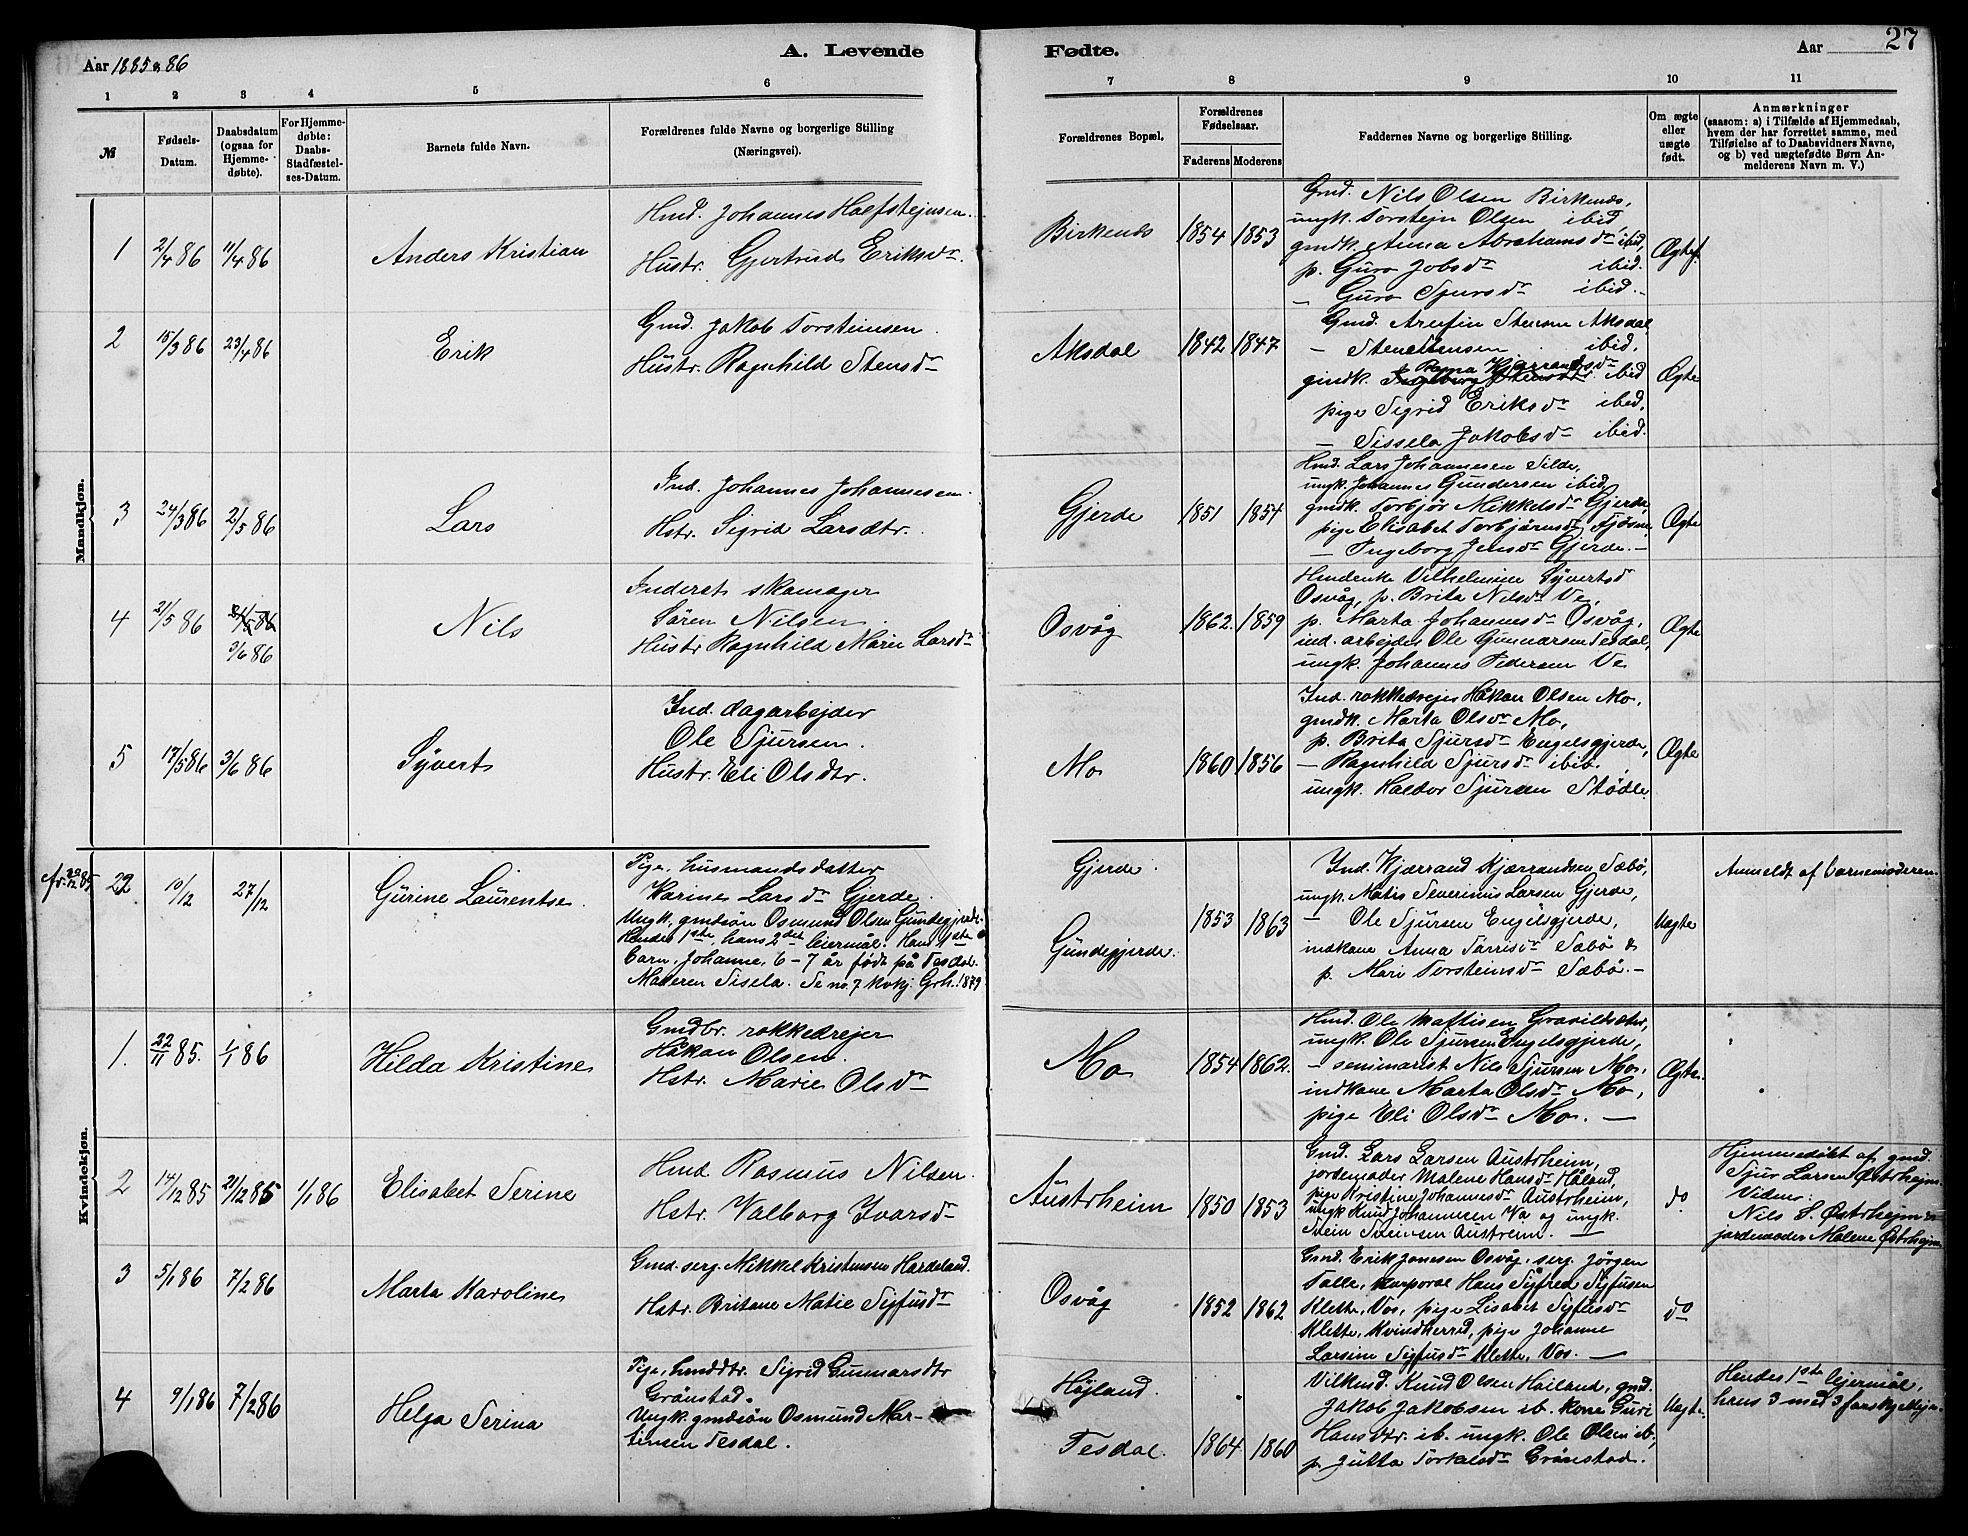 Aar 1885 & 86
A. Levende
Fødte.
Aar
27
1
2
3
4
5
6
7
8
9
10
11
№
Fødsels-
Datum.
Daabsdatum
(ogsaa for
Hjemme-
døbte).
For Hjemme-
døbte:
Daabs-
Stadfæstel-
ses-Datum.
Barnets fulde Navn.
Forældrenes fulde Navne og borgerlige Stilling
(Næringsvei).
Forældrenes Bopæl.
Forældrenes
Fødselsaar.
Faderens
Moderens
Faddernes Navne og borgerlige Stilling.
Om ægte
eller
uægte
født.
Anmærkninger
(saasom: a) i Tilfælde af Hjemmedaab,
hvem der har forrettet samme, med
Tilføielse af to Daabsvidners Navne,
og b) ved uægtefødte Børn An-
melderens Navn m. V.)
Mandkjøn.
1
2/4 86
11/4 86
Anders Kristian
Hmd. Johannes Halfstejnsen.
Hustr. Gjertrud Eriksdr.
Birkenes
1854
1853
Gmd. Nils Olsen Birkenes,
ungk. Torstejn Olsen ibid
gmdk. Anna Abrahamsdr ibid,
p. Guro Jobsdr ibid.
– Guro Sjursdr ibid.
Ægtef.
2
15/3 86
23/4 86
Erik
Gmd. Jakob Torsteinsen
Hustr. Ragnhild Stensdr
Aksdal
1842
1847
Gmd. Arnfin Stensen Aksdal
– Sten Stensen ibid.
Kjærrandsdr
gmdk. Ingeborg Stensdr ibid
pige Sigrid Eriksdr ibid,
– Sissela Jakobsdr ibid.
Ægte
3
24/3 86
2/5 86
Lars
Ind. Johannes Johannesen
Hstr. Sigrid Larsdtr.
Gjerde
1851
1854
Hmd. Lars Johannesen Silde,
ungk. Johannes Gundersen ibid,
gmdk. Torbjør Mikkelsdr Gjerde,
pige Elisabet Torbjørnsdr, Fjøsne,
– Ingeborg Jensdr Gjerde.
Ægte
4
2/5 86
9/6 86
Nils
Inderst skomager
Søren Nilsen.
Hustr Ragnhild Marie Larsdr
Osvåg
1862.
1859
Hmdenke Vilhelmine Syvertsdr
Osvåg, p. Brita Nilsdr Ve,
p. Marta Johannesdr Osvåg,
ind. arbejder Ole Gunnarsen Tesdal,
ungk. Johannes Pedersen Ve
Ægte
5
17/5 86
3/6 86
Syvert
Ind. dagarbejder
Ole Sjursen.
Hustr. Eli Olsdtr.
Mo
1860
1856
Ind. rokkedrejer Håkan Olsen Mo,
gmdk. Marta Olsdr Mo,
p. Brita Sjursdr Engelsgjerde,
– Ragnhild Sjursdr ibid.
ungk. Haldor Sjursen Stødle
Ægte
22
10/12
27/12
Gurine Laurentse
Pige, husmandsdatter
Karine Larsdr Gjerde.
Ungk, gmdsøn Osmund Olsen Gundegjerde.
Hendes 1ste, hans 2det leiermål. Hans 1ste
barn, Johanne, 6–7 år født på Tesdal.
Moderen Sisela. Se no. 7 kvkj. Grh. 1879
Gjerde.
Gundegjerde.
1853
1863
Ind. Kjærrand Kjærrandsen Sæbø,
ungk. Matis Severinus Larsen Gjerde,
– Ole Sjursen Engelsgjerde,
indkone Anna Tørrisdr Sæbø &
p. Mari Torsteinsdr Sæbø.
Uægte
Anmeldt af barnemoderen
Kvindekjøn.
1.
22/11 85.
1/1 86
Hilda Kristine
Gmdbr. rokkedrejer
Håkan Olsen.
Hstr. Marie Olsdr
Mo
1854
1862.
Hmd. Ole Mattisen Gravildsæter,
ungk. Ole Sjursen Engelsgjerde,
– seminarist Nils Sjursen Mo,
indkone Marta Olsdr Mo,
pige Eli Olsdr Mo.
Ægte.
2
14/12 85
21/12 85
1/1 86
Elisabet Serine
Hmd. Rasmus Nilsen.
Hstr. Valborg Ivarsdr
Austrheim
1850
1853
Gmd. Lars Larsen Austrheim,
jordemoder Malene Hansdr Håland,
pige Kristine Johannesdr Austrheim,
ungk Knud Johannesen Va og ungk.
Svein Svensen Austreim.
do
Hjemmedøbt af gmd.
Sjur Larsen Østrhejm.
Vidner:
Nils S. Østrhejm &
jordemoder Malene Østrhejm
3
5/1 86
7/2 86
Marta Karoline
Gmd. serg. Mikkel Kristensen Hardeland.
Hstr. Britane Matie Sigfusdr
Osvåg
1852
1862
Gmd. Erik Jonesen Osvåg, serg. Jørgen
Tolle, korporal Hans Sigfred Sigfusen
Klette, Vos, pige Lisabet Sigfusdr
Klette, Kvindherred, pige Johanne
Larsine Sigfusdr Klette, Vos.
do
4
9/1 86
7/2 86
Helga Serina
Pige, hmddtr. Sigrid Gunnarsdtr
Grønstad.
Ungk. gmdsøn Osmund Mar-
tinsen Tesdal.
Højland.
Tesdal.
1864
1860
Vilkmd. Knud Olsen Høiland, gmd.
Jakob Jakobsen ib. kone Guri
Hansdtr. ib. ungk. Ole Olsen ib.,
p. Jutta Torkelsdr Grønstad.
Uægte.
Hendes 1ste lejermål,
hans 3 med 3 forskj.